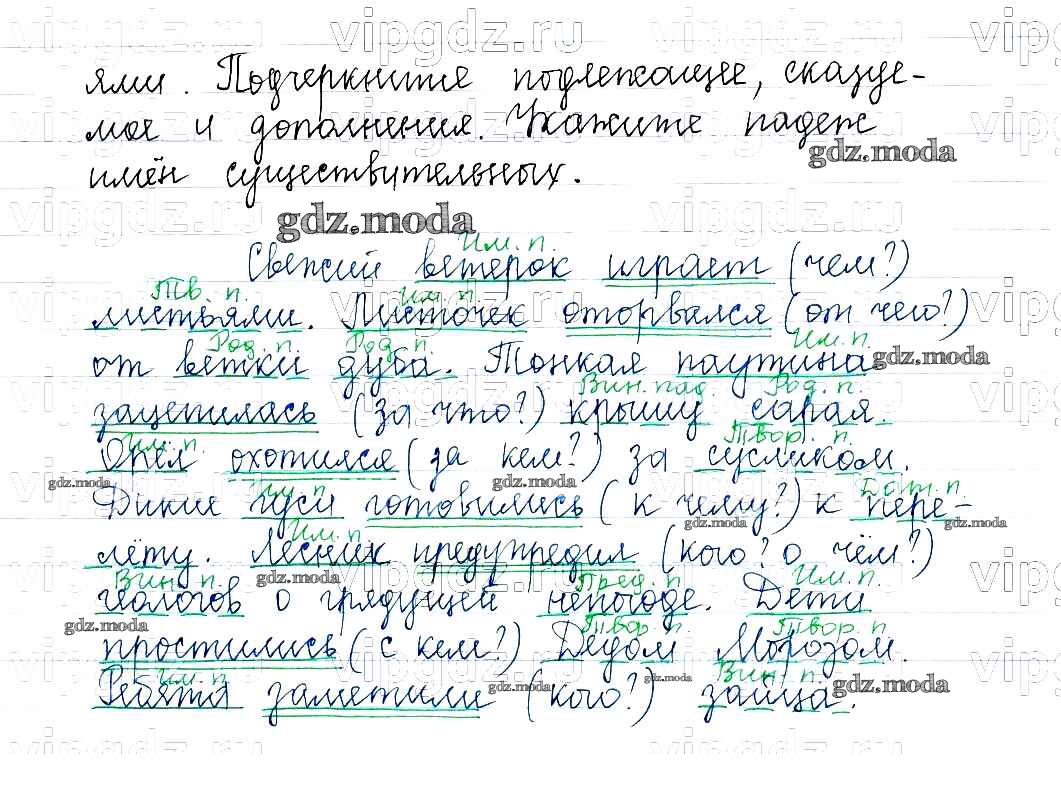 ями. Подчеркните подлежащее, сказуе-
мое и дополнения. Укажите падеж
gdz.moda
имён существительных.
gdz.moda
Им. п.
Свежий ветерок играет (чем?)
Тв. п. Им. п.
листьями. Листочек оторвался (от чего?)
Род. п. Род. п. Им. п.
от ветки дуба. Тонкая паутина
gdz.moda
Вин. пад. Род. п.
зацепилась (за что?) крышу сарая.
Им. п. Твор. п.
Орёл охотился (за кем?) за сусликом.
gdz.moda gdz.moda
Им. п. Дат. п.
Дикие гуси готовились (к чему?) к пере-
gdz.moda gdz.moda
Им. п.
лёту. Лесник предупредил (кого? о чём?)
gdz.moda
Вин. п. Пред. п. Им. п.
геологов о грядущей непогоде. Дети
gdz.moda
Твор. п. Твор. п.
простились (с кем?) Дедом Морозом.
gdz.moda gdz.moda gdz.moda
Им. п. Вин. п.
Ребята заметили (кого?) зайца.